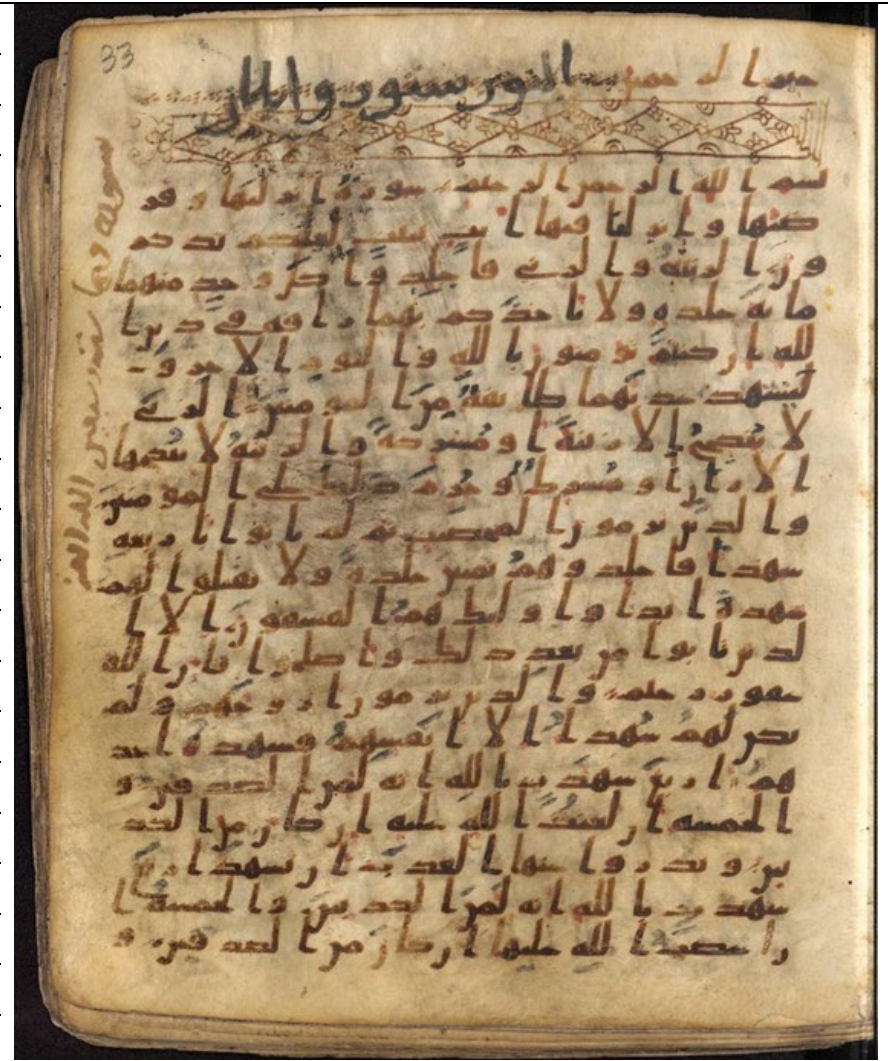 خير الرحمين
النور ستون وايتان
بسم الله الرحمن الرحيم سورة انزلنها وفر
ضنها وانزلنا فيها ايت بينت لعلكم تذكر
ون الزنية والزني فاجلدوا كل وحد منهما
مائة جلدة ولا تاخذكم بهما رافة في دين ا
لله ان كنتم تومنون بالله واليوم الاخر و
ليشهد عذبهما طائفة من المومنين الزني
لا ينكح الا زنية او مشركة والزنية لا ينكحها
الا زان او مشرك وحرم ذلك على المومنين
والذين يرمون المحصنت ثم لم ياتوا باربعة
شهدا فاجلدوهم ثمنين جلدة ولا تقبلوا لهم
شهدة ابدا واولئك هم الفسقون الا ا
لذين تابوا من بعد ذلك واصلحوا فان الله
غفور رحيم والذين يرمون ازوجهم ولم
يكن لهم شهدا الا انفسهم فشهدة احد
هم اربع شهدت بالله انه لمن الصدقين و
الخمسة ان لعنت الله عليه ان كان من الكذ
بين ويدروا عنها العذب ان تشهد اربع
شهدت بالله انه لمن الكذبين والخمسة ا
ن غضب الله عليها ان كان من الصدقين و
33